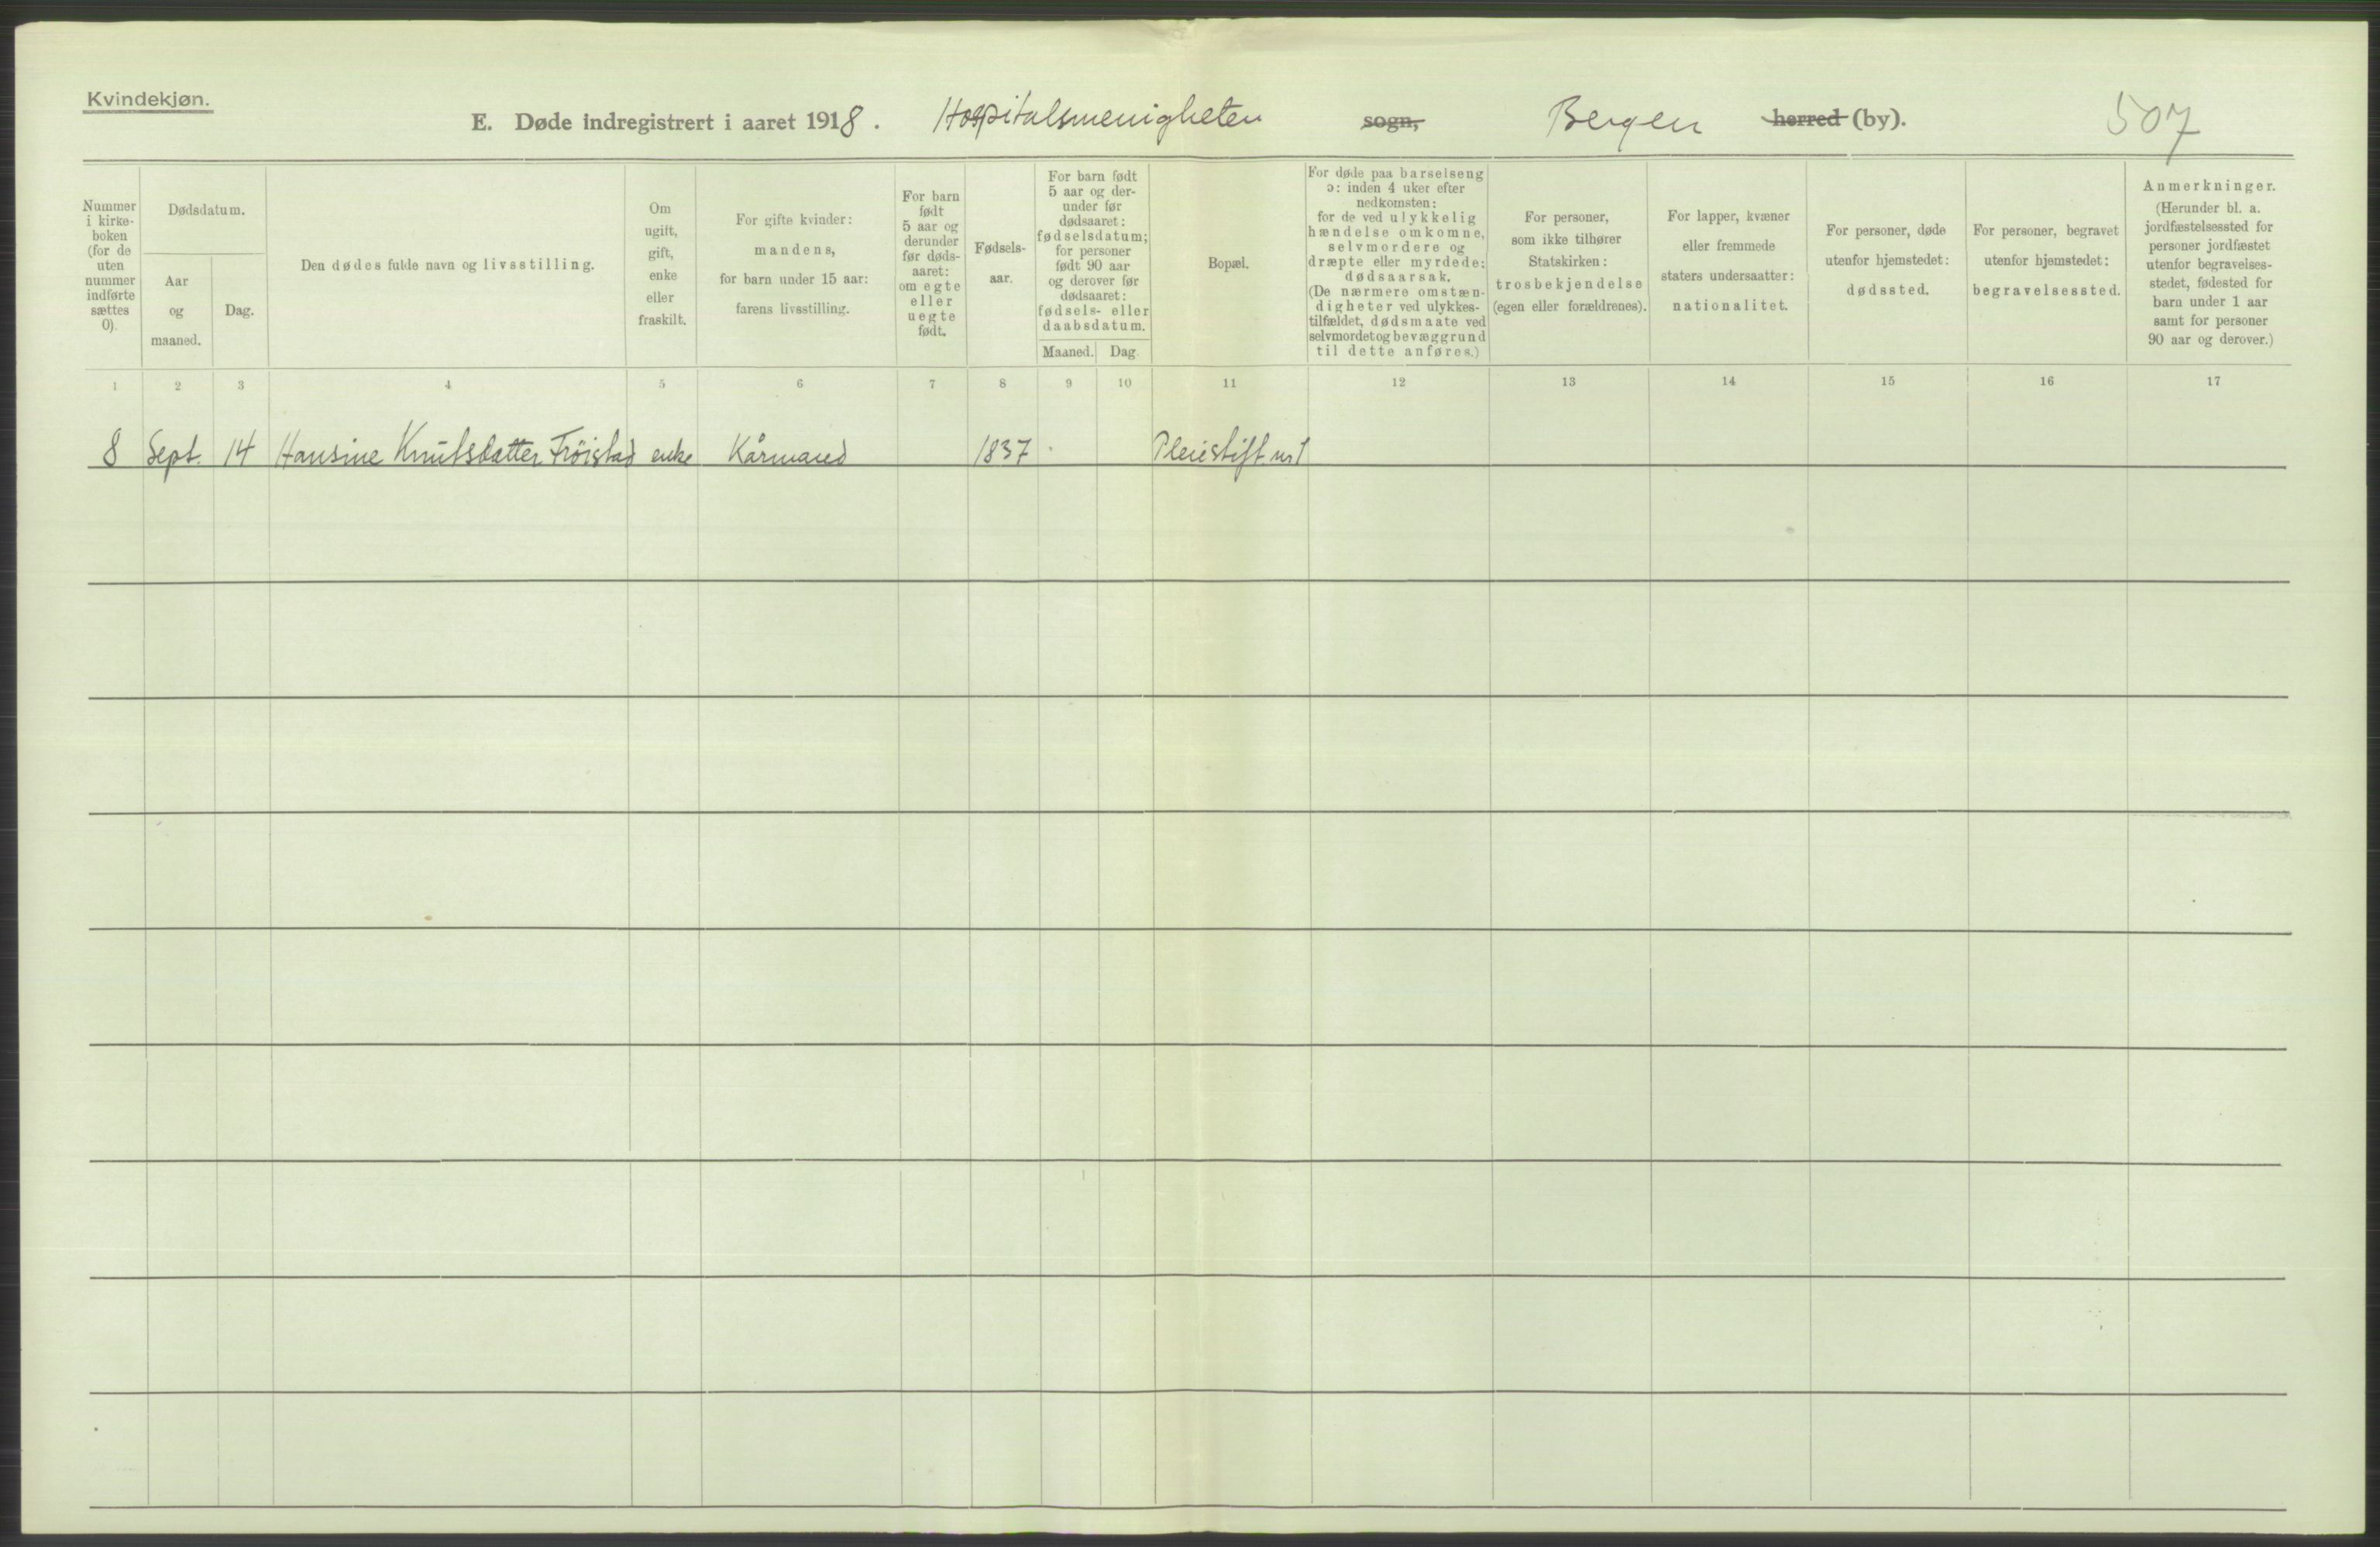 Kvindekjøn.
E. Døde indregistrert i aaret 1918. Hospitalsmenigheten sogn, Bergen herred (by). 507
Nummer
i kirke-
boken
(for de
uten
nummer
indførte
sættes
0).
Dødsdatum.
Aar
og
maaned.
Dag.
Den dødes fulde navn og livsstilling.
Om
ugift,
gift,
enke
eller
fraskilt.
For gifte kvinder:
mandens,
for barn under 15 aar:
farens livsstilling.
For barn
født
5 aar og
derunder
før døds-
aaret:
om egte
eller
uegte
født.
Fødsels-
aar.
For barn født
5 aar og der-
under før
dødsaaret:
fødselsdatum;
for personer
født 90 aar
og derover før
dødsaaret:
fødsels- eller
daabsdatum.
Maaned. Dag.
Bopæl.
For døde paa barselseng
ɔ: inden 4 uker efter
nedkomsten:
for de ved ulykkelig
hændelse omkomne,
selvmordere og
dræpte eller myrdede:
dødsaarsak.
(De nærmere omstæn-
digheter ved ulykkes-
tilfældet, dødsmaate ved
selvmordet og bevæggrund
til dette anføres.)
For personer,
som ikke tilhører
Statskirken:
trosbekjendelse
(egen eller forældrenes).
For lapper, kvæner
eller fremmede
staters undersaatter:
nationalitet.
For personer, døde
utenfor hjemstedet:
dødssted.
For personer, begravet
utenfor hjemstedet:
begravelsessted.
Anmerkninger.
(Herunder bl. a.
jordfæstelsessted for
personer jordfæstet
utenfor begravelses-
stedet, fødested for
barn under 1 aar
samt for personer
90 aar og derover.)
1 2 3 4 5 6 7 8 9 10 11 12 13 14 15 16 17
8 Sept. 14 Hansine Knutsdatter Frøistad enke Kårmand 1837 Pleiestift. nr 1